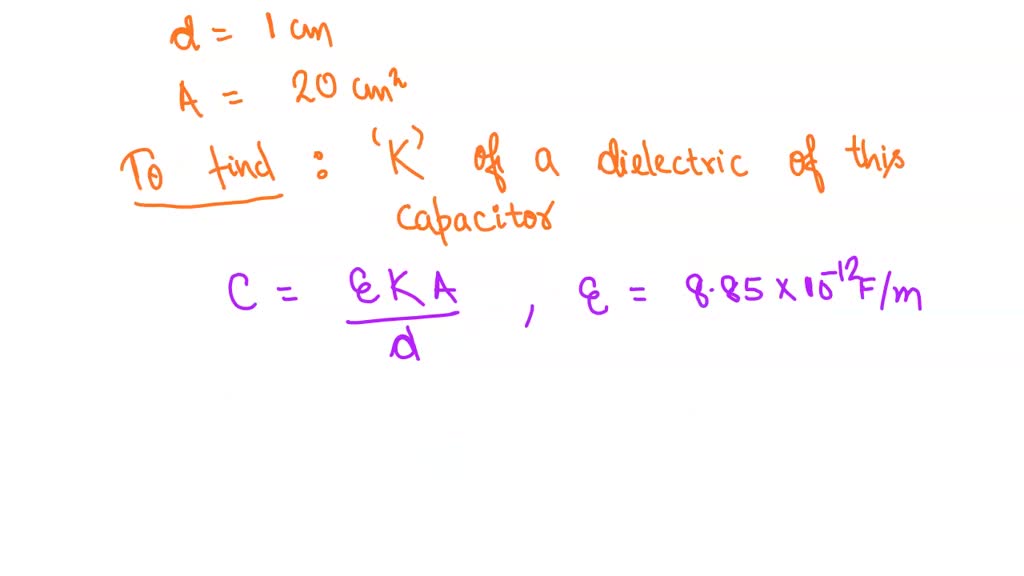 d = 1 cm
A = 20 cm²
To find : 'K' of a dielectric of this
capacitor
C = εKA / d , ε = 8.85 × 10⁻¹² F/m